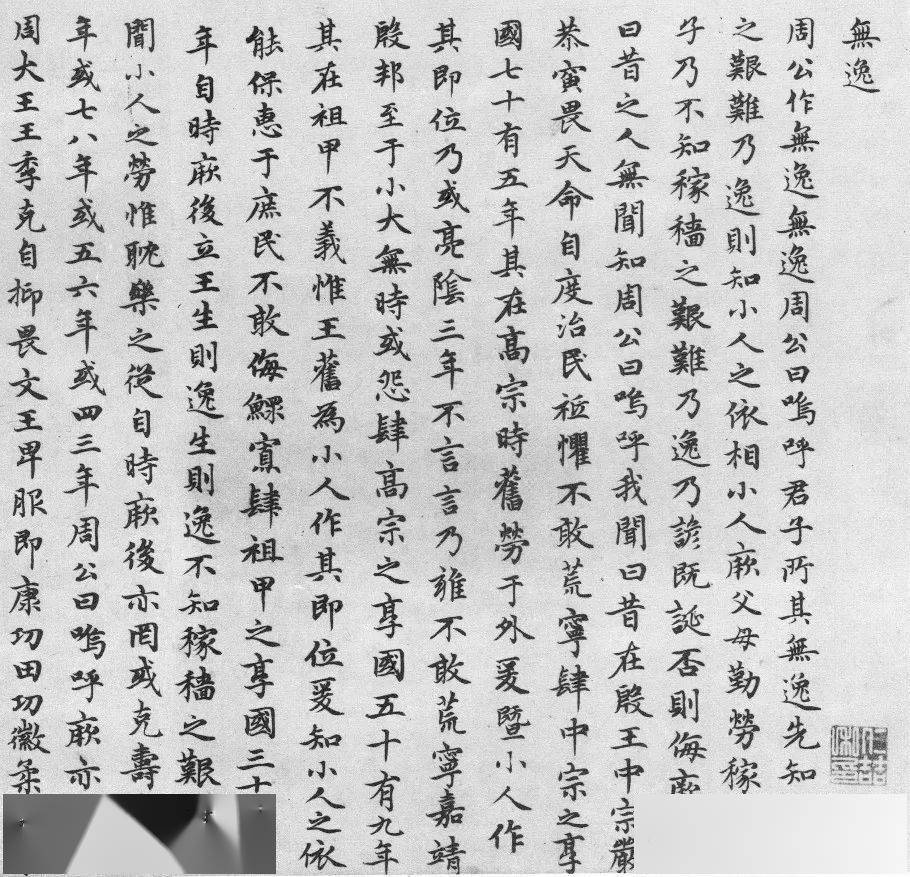 無逸
周公作無逸無逸周公曰嗚呼君子所其無逸先知
之艱難乃逸則知小人之依相小人厥父母勤勞稼
子乃不知稼穡之艱難乃逸乃諺既誕否則侮厥
曰昔之人無聞知周公曰嗚呼我聞曰昔在殷王中宗嚴
恭寅畏天命自度治民祗懼不敢荒寧肆中宗之享
國七十有五年其在高宗時舊勞于外爰暨小人作
其即位乃或亮陰三年不言言乃雍不敢荒寧嘉靖
殷邦至于小大無時或怨肆高宗之享國五十有九年
其在祖甲不義惟王舊為小人作其即位爰知小人之依
能保惠于庶民不敢侮鰥寡肆祖甲之享國三十
年自時厥後立王生則逸生則逸不知稼穡之艱
聞小人之勞惟耽樂之從自時厥後亦罔或克壽
年或七八年或五六年或四三年周公曰嗚呼厥亦
周大王王季克自抑畏文王卑服即康功田功徽柔